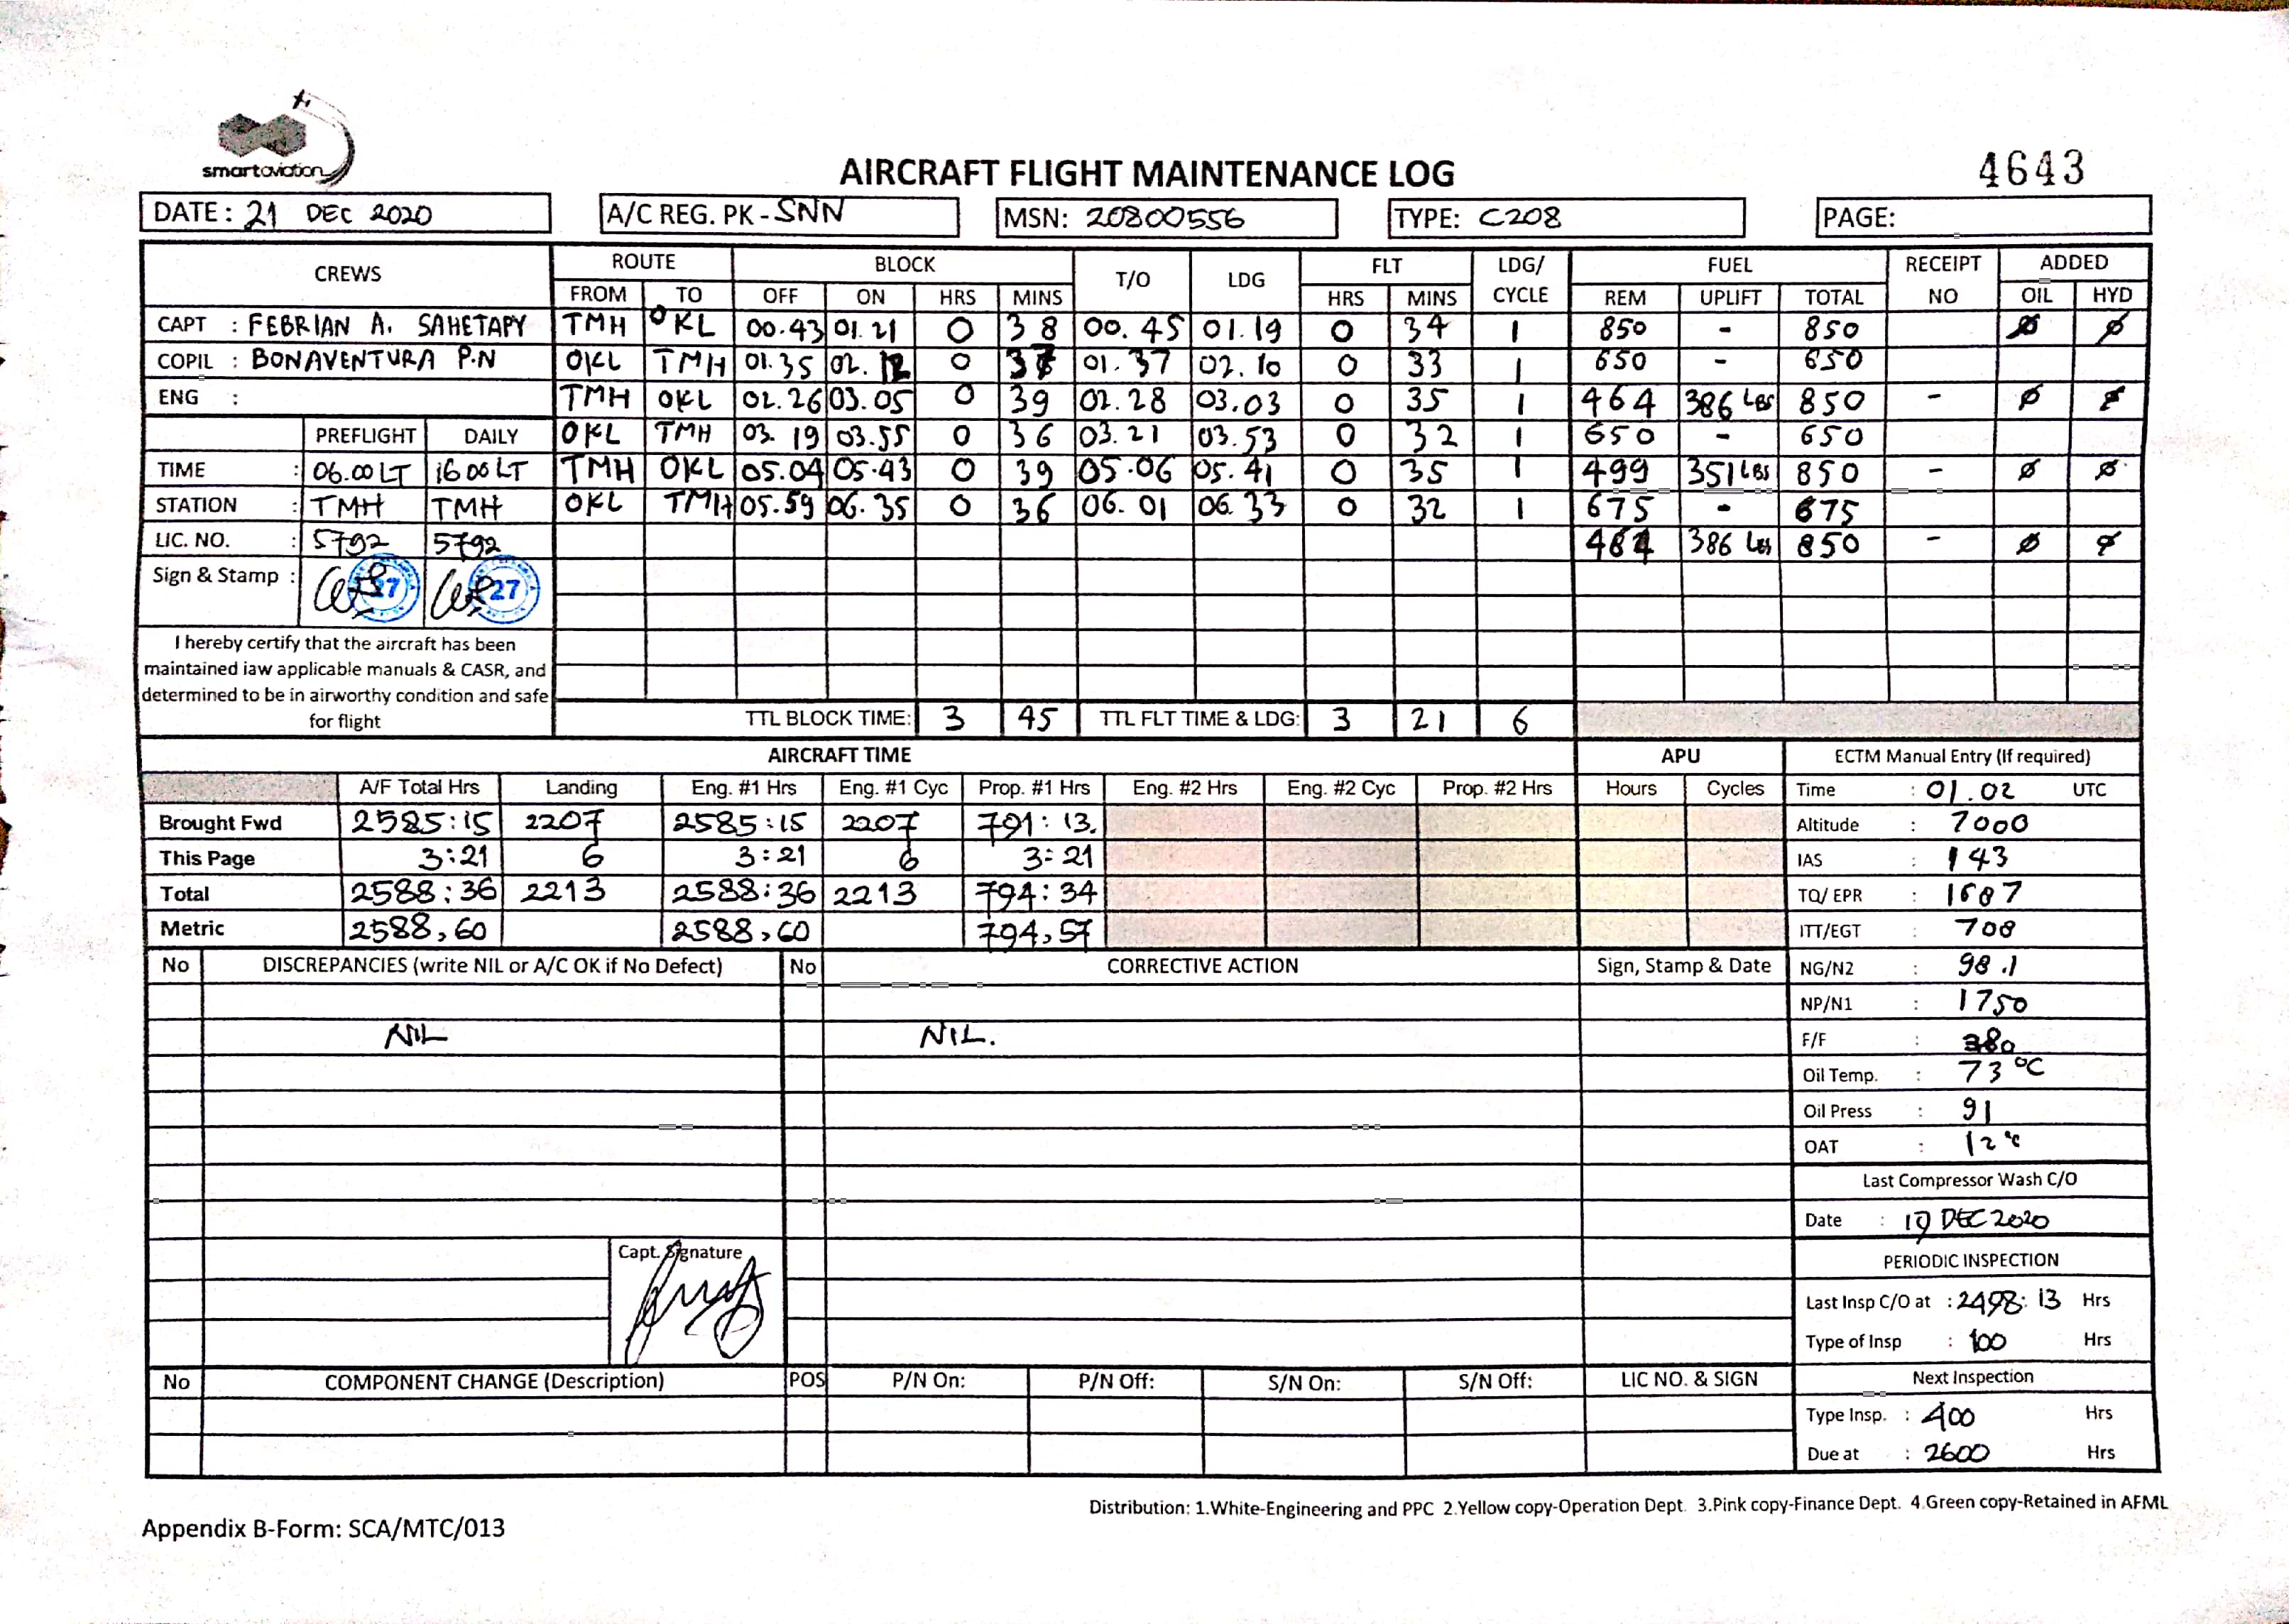 smartaviation
AIRCRAFT FLIGHT MAINTENANCE LOG
4643
DATE: 21 DEC 2020 A/C REG. PK-SNN MSN: 20800556 TYPE: C208 PAGE:
CREWS ROUTE BLOCK T/O LDG FLT LDG/ FUEL RECEIPT ADDED
FROM TO OFF ON HRS MINS HRS MINS CYCLE REM UPLIFT TOTAL NO OIL HYD
CAPT : FEBRIAN A. SAHETAPY TMH OKL 00.43 01.21 0 38 00.45 01.19 0 34 1 850 - 850 Ø Ø
COPIL : BONAVENTURA P.N OKL TMH 01.35 02.12 0 37 01.37 02.10 0 33 1 650 - 650
ENG : TMH OKL 02.26 03.05 0 39 02.28 03.03 0 35 1 464 386 LBS 850 - Ø Ø
PREFLIGHT DAILY OKL TMH 03.19 03.55 0 36 03.21 03.53 0 32 1 650 - 650
TIME : 06.00 LT 16 00 LT TMH OKL 05.04 05.43 0 39 05.06 05.41 0 35 1 499 351 LBS 850 - Ø Ø
STATION : TMH TMH OKL TMH 05.59 06.35 0 36 06.01 06.33 0 32 1 675 - 675
LIC. NO. : 5792 5792 464 386 LBS 850 - Ø Ø
Sign & Stamp : 27 27
I hereby certify that the aircraft has been
maintained iaw applicable manuals & CASR, and
determined to be in airworthy condition and safe
for flight
TTL BLOCK TIME: 3 45 TTL FLT TIME & LDG: 3 21 6
AIRCRAFT TIME APU ECTM Manual Entry (If required)
A/F Total Hrs Landing Eng. #1 Hrs Eng. #1 Cyc Prop. #1 Hrs Eng. #2 Hrs Eng. #2 Cyc Prop. #2 Hrs Hours Cycles Time : 01.02 UTC
Brought Fwd 2585:15 2207 2585:15 2207 791:13. Altitude : 7000
This Page 3:21 6 3:21 6 3:21 IAS : 143
Total 2588:36 2213 2588:36 2213 794:34 TQ/ EPR : 1687
Metric 2588,60 2588,60 794,57 ITT/EGT : 708
No DISCREPANCIES (write NIL or A/C OK if No Defect) No CORRECTIVE ACTION Sign, Stamp & Date NG/N2 : 98.1
NP/N1 : 1750
NIL NIL. F/F : 380
Oil Temp. : 73°C
Oil Press : 91
OAT : 12°C
Last Compressor Wash C/O
Date : DEC 2020
Capt. Signature PERIODIC INSPECTION
Last Insp C/O at : 2498:13 Hrs
Type of Insp : 100 Hrs
No COMPONENT CHANGE (Description) POS P/N On: P/N Off: S/N On: S/N Off: LIC NO. & SIGN Next Inspection
Type Insp. : 400 Hrs
Due at : 2600 Hrs
Distribution: 1.White-Engineering and PPC 2.Yellow copy-Operation Dept. 3.Pink copy-Finance Dept. 4.Green copy-Retained in AFML
Appendix B-Form: SCA/MTC/013